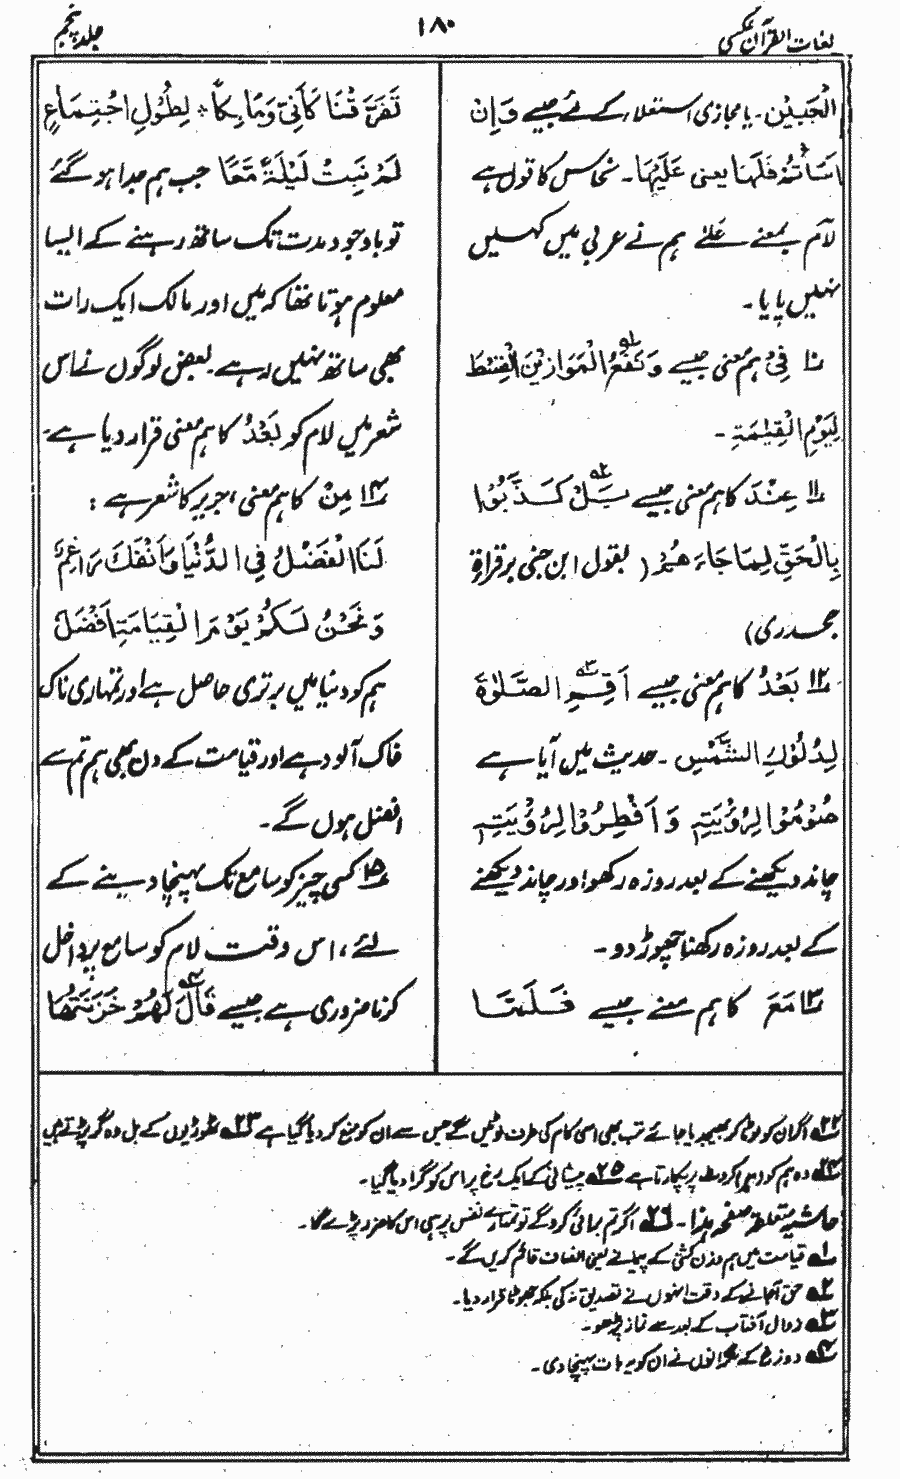 لغات القرآن عکسی
۱۸۰
جلد پنجم
الْجَبِیْنِ۔ یا مجازی استعلاء کے لئے جیسے وَاِنْ
اَسَأْتُمْ فَلَهَا یعنی عَلَيْهَا۔ نحاس کا قول ہے
لام بمعنے عَلٰے ہم نے عربی میں کہیں
نہیں پایا۔
۱۰ فِیْ ہم معنی جیسے وَنَضَعُ الْمَوَازِیْنَ الْقِسْطَ
لِيَوْمِ الْقِيٰمَةِ۔
۱۱ عِنْدَ کا ہم معنی جیسے بَلْ كَذَّبُوْا
بِالْحَقِّ لِمَا جَاءَهُمْ (بقول ابن جنی بر قراۃ
جحدری)
۱۲ بَعْدُ کا ہم معنی جیسے اَقِمِ الصَّلٰوةَ
لِدُلُوْكِ الشَّمْسِ۔ حدیث میں آیا ہے
صُوْمُوْا لِرُؤْيَتِهٖ وَ اَفْطِرُوْا لِرُؤْيَتِهٖ
چاند دیکھنے کے بعد روزہ رکھو اور چاند دیکھنے
کے بعد روزہ رکھنا چھوڑ دو۔
۱۳ مَعَ کا ہم معنے جیسے فَلَمَّا
تَفَرَّقْنَا كَاَنِّیْ وَمَالِكًا ؞ لِطُوْلِ اجْتِمَاعٍ
لَمْ نَبِتْ لَيْلَةً مَّعًا جب ہم جدا ہو گئے
تو باوجود مدت تک ساتھ رہنے کے ایسا
معلوم ہوتا تھا کہ میں اور مالک ایک رات
بھی ساتھ نہیں رہے۔ بعض لوگوں نے اس
شعر میں لام کو بَعْدُ کا ہم معنی قرار دیا ہے۔
۱۴ مِنْ کا ہم معنی، جریر کا شعر ہے :
لَنَا الْفَضْلُ فِي الدُّنْيَا وَاَنْفُكَ رَاغِمٌ
وَنَحْنُ لَكُمْ يَوْمَ الْقِيَامَةِ اَفْضَلُ
ہم کو دنیا میں برتری حاصل ہے اور تمہاری ناک
خاک آلود ہے اور قیامت کے دن بھی ہم تم سے
افضل ہوں گے۔
۱۵ کسی چیز کو سامع تک پہنچا دینے کے
لئے، اس وقت لام کو سامع پر داخل
کرنا ضروری ہے جیسے قَالَ لَهُمْ خَزَنَتُهَا
۲۲ اگر ان کو لوٹا کر بھیجدیا جائے تب بھی اسی کام کی طرف لوٹیں گے جس سے ان کو منع کر دیا گیا ہے ۲۳ ٹھوڑیوں کے بل وہ گر پڑتے ہیں
۲۴ وہ ہم کو دہر اکروٹ پر پکارتا ہے ۲۵ پیشانی کے ایک رخ پر اس کو گرا دیا گیا۔
حاشیہ متعلقہ صفحہ ہذا۔ ۲۶ اگر تم برائی کرو گے تو تمہارے نفس پر ہی اس کا ضرر پڑے گا۔
۱ قیامت میں ہم وزن کشی کے پیمانے یعنی انصاف قائم کریں گے۔
۲ حق آجانے کے وقت انہوں نے تصدیق نہ کی بلکہ جھوٹا قرار دیا۔
۳ زوال آفتاب کے بعد سے نماز پڑھو۔
۴ دوزخ کے نگرانوں نے ان کو یہ بات پہنچا دی۔